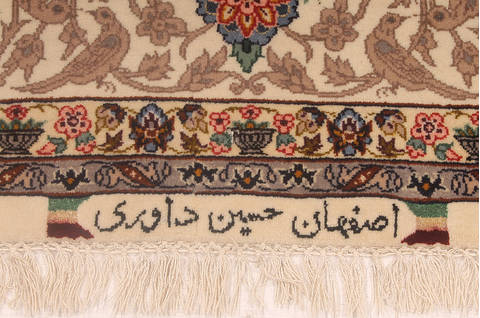 اصفهان حسین داوری